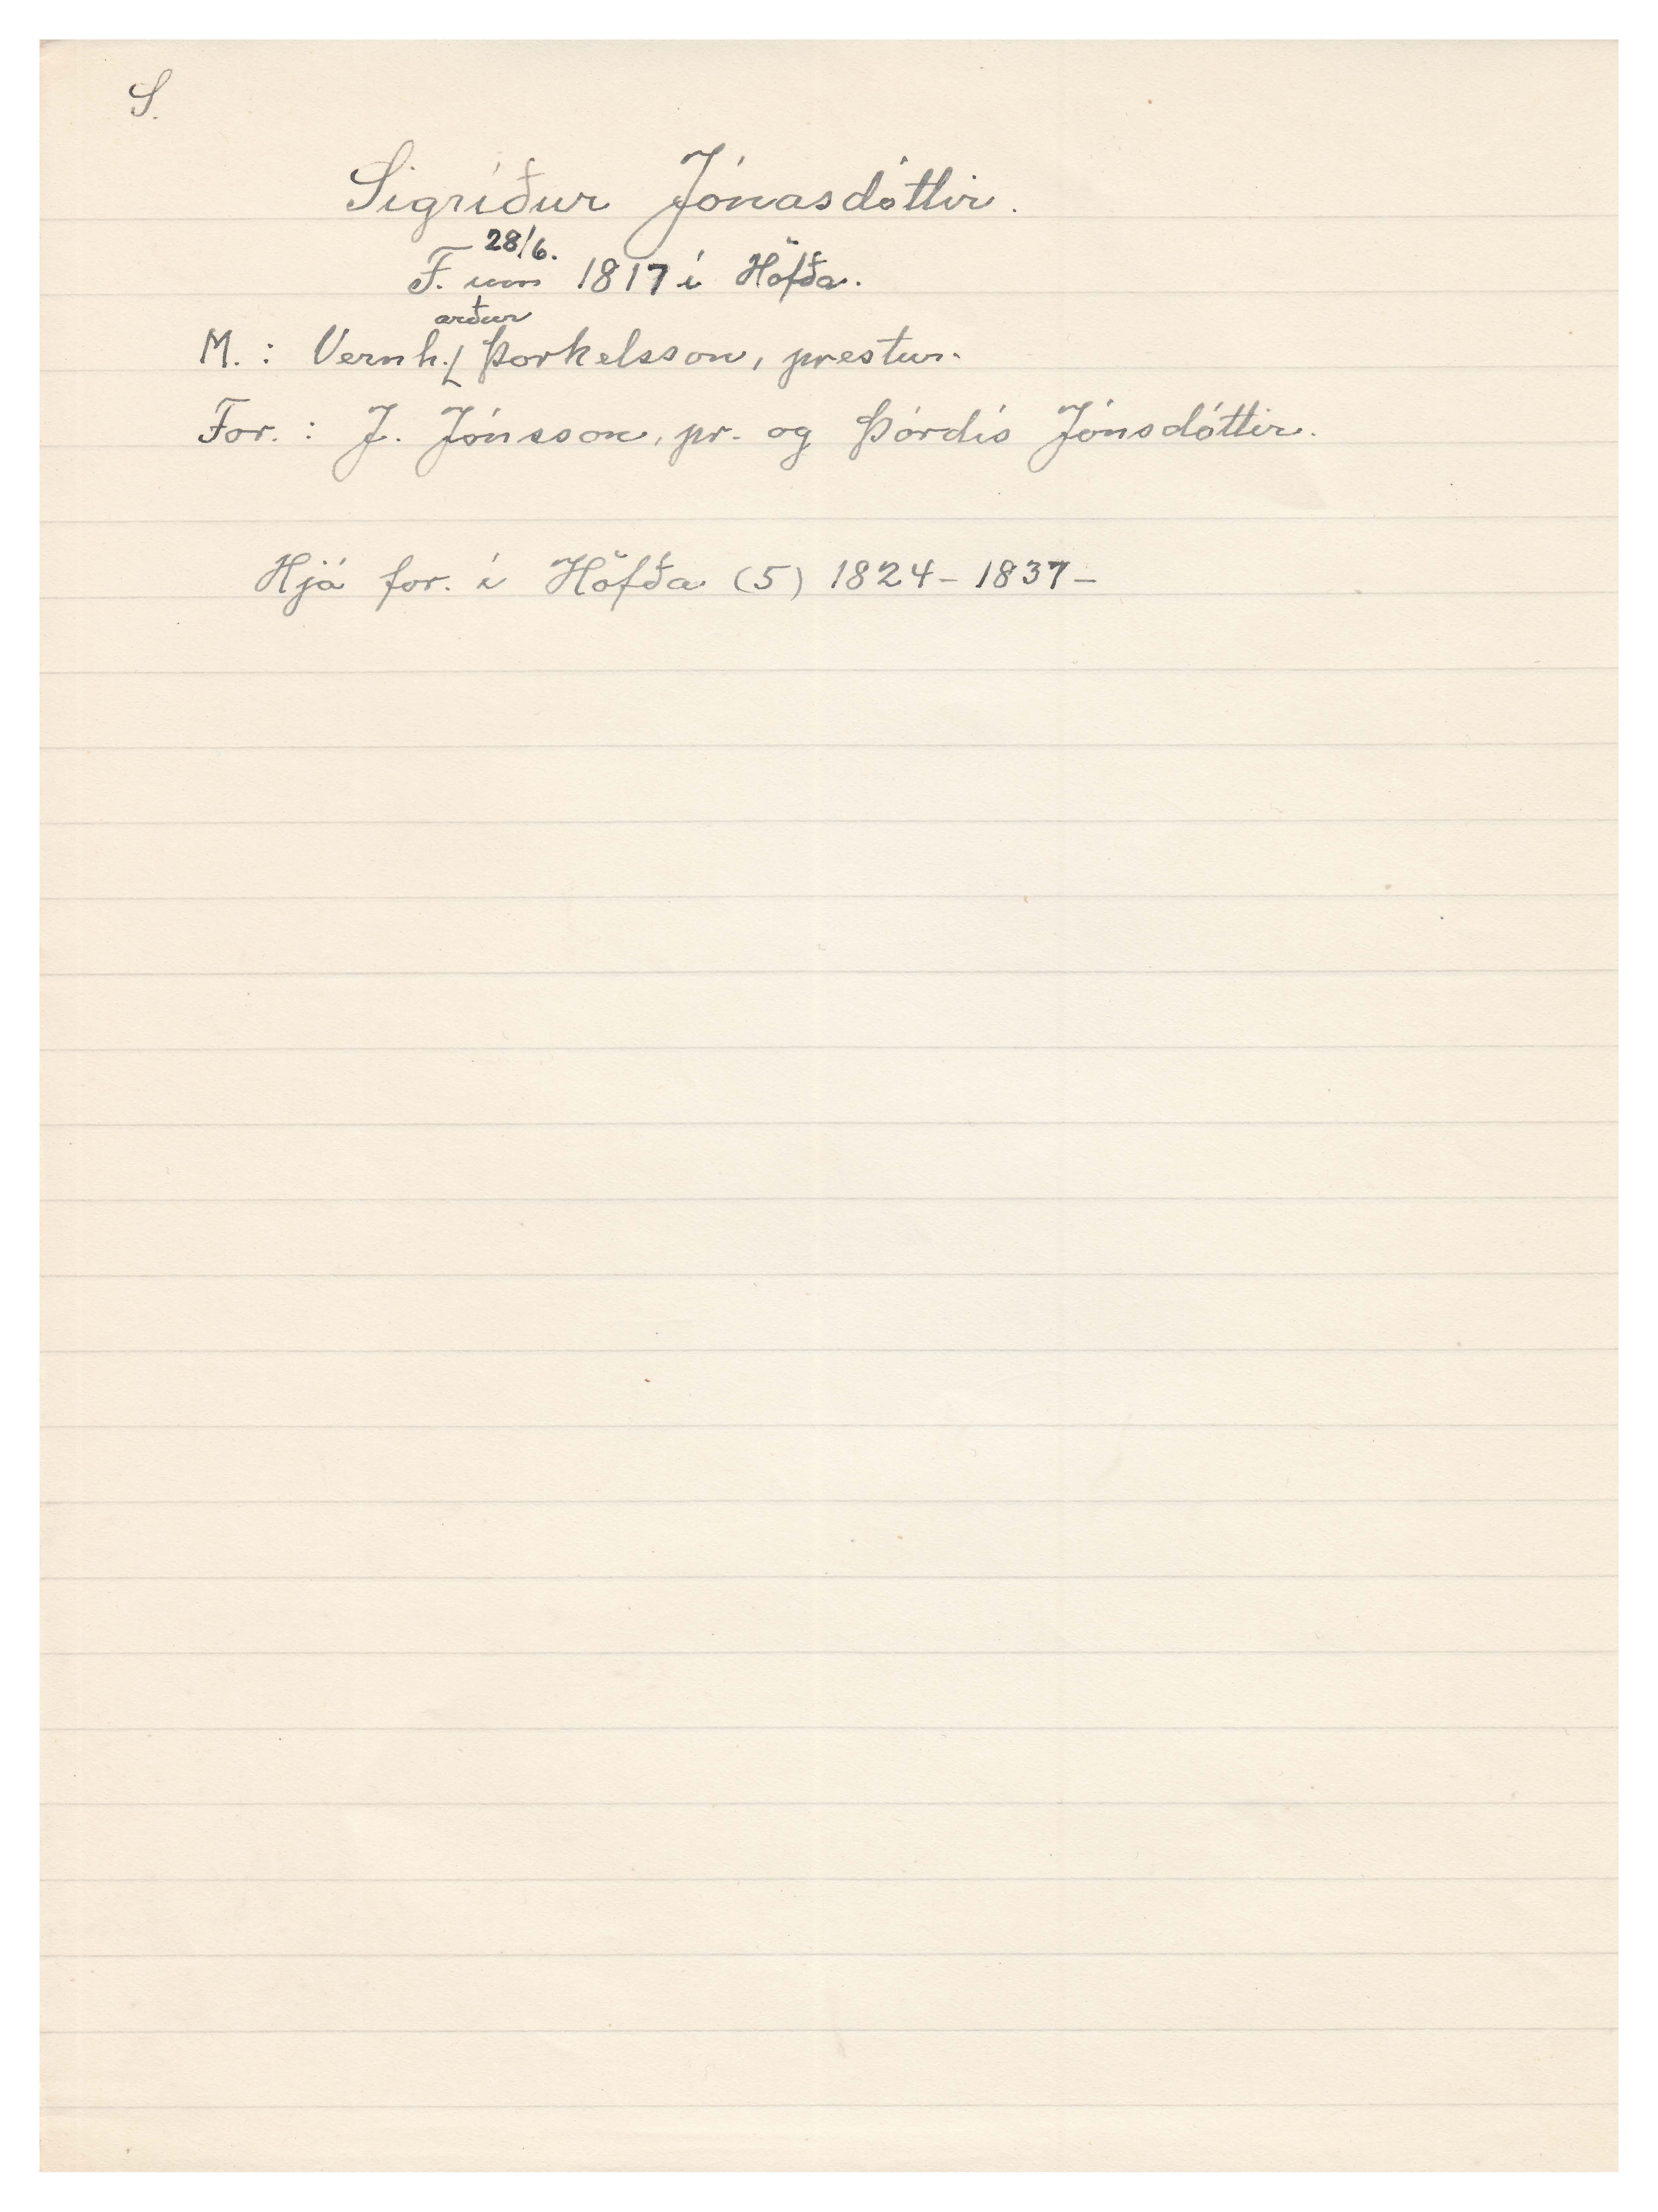 S.
Sigríður Jónasdóttir.
28/6.
F. um 1817 í Höfða.
arður
M. : Vernh. Þorkelsson, prestur.
For. : J. Jónsson, pr. og Þórdís Jónsdóttir.
Hjá for. í Höfða (5) 1824 - 1837 -